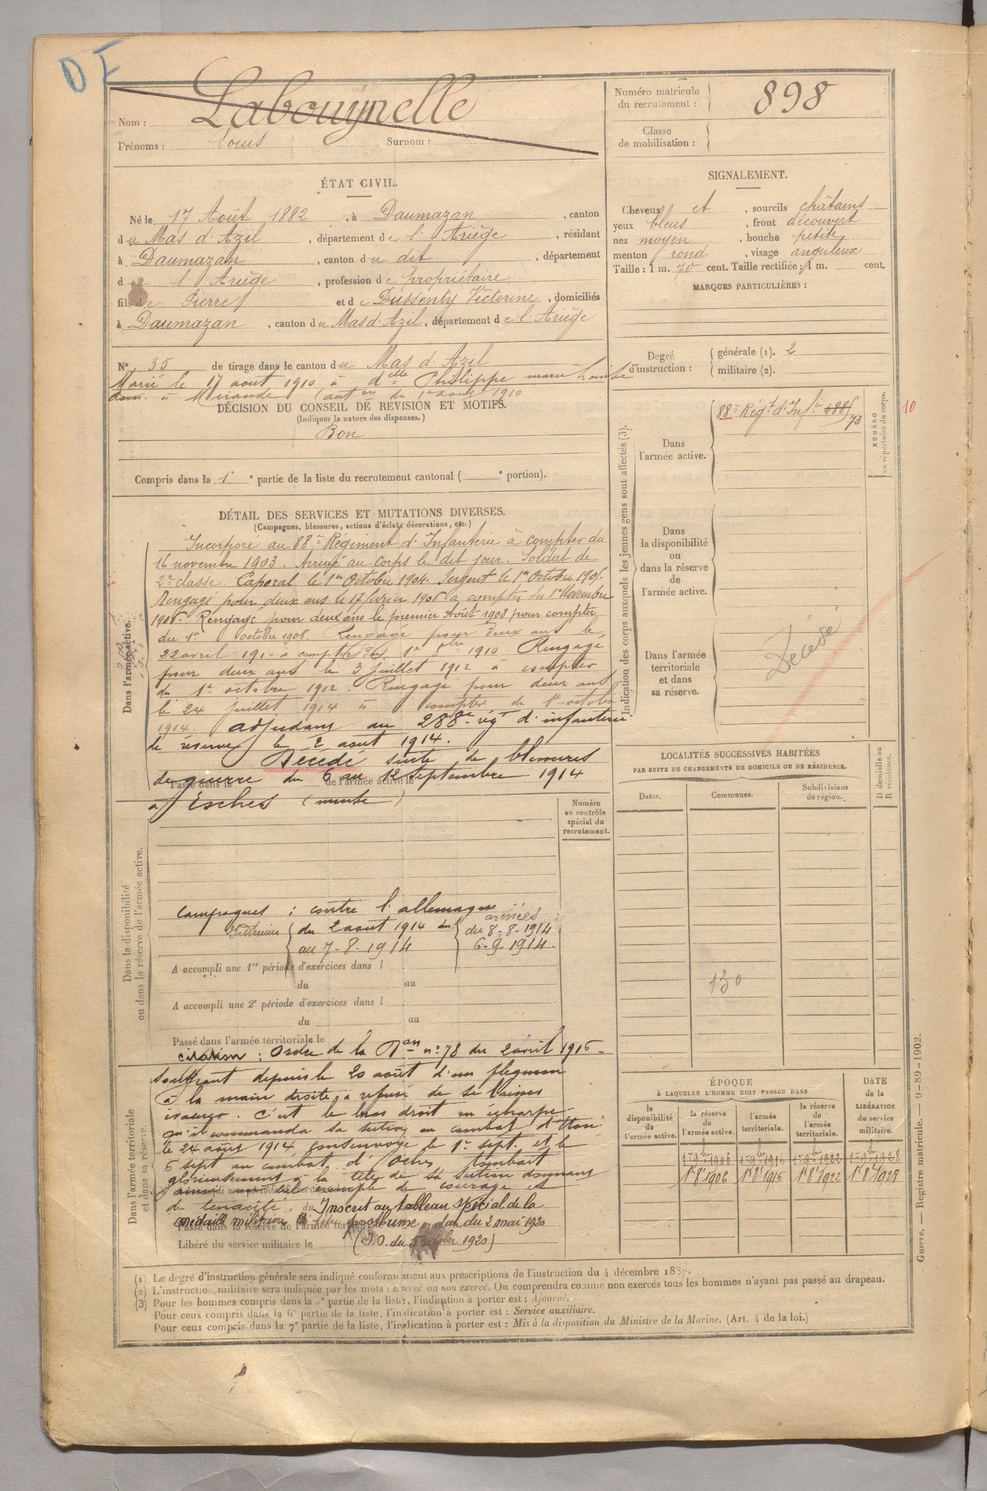 DE
Nom : Labouynelle
Prénoms : Louis Surnom :
Numéro matricule du recrutement : 898
Classe de mobilisation :
ÉTAT CIVIL.
Né le 17 Août 1882, à Daumazan, canton
du Mas d'Azil, département de l'Ariège, résidant
à Daumazan, canton du dit, département
d l'Ariège, profession de propriétaire
fils de Pierre et de Dussenty Victorine, domiciliés
à Daumazan, canton du Mas d'Azil, département de l'Ariège
N° 35 de tirage dans le canton du Mas d'Azil
Marié le 17 aout 1910 à delle Philippe marie louise
dom. à Mirande (auton du 1er aout 1910
SIGNALEMENT.
Cheveux et, sourcils châtains
yeux bleus, front découvert
nez moyen, bouche petite
menton rond, visage anguleux
Taille : 1 m. 70 cent. Taille rectifiée : 1 m. cent.
MARQUES PARTICULIÈRES :
Degré d'instruction : générale (1). 2
militaire (2).
DÉCISION DU CONSEIL DE RÉVISION ET MOTIFS.
(Indiquer la nature des dispenses.)
Bon
Compris dans la 1e partie de la liste du recrutement cantonal ( e portion).
DÉTAIL DES SERVICES ET MUTATIONS DIVERSES.
(Campagnes, blessures, actions d'éclat, décorations, etc.)
Dans l'armée active.
Incorporé au 88e Régiment d'Infanterie à compter du
16 novembre 1903. Arrivé au corps le dit jour. Soldat de
2e classe. Caporal le 1er Octobre 1904. Sergent le 1er Octobre 1905.
Rengagé pour deux ans le 17 février 1906 à compter du 1er Novembre
1906. Rengagé pour deux ans le premier Août 1908 pour compter
du 1er octobre 1908. Rengagé pour deux ans le
22 avril 1910 à compter du 1er 8bre 1910. Rengagé
pour deux ans le 3 juillet 1912 à compter
du 1er octobre 1912. Rengagé pour deux ans
le 24 juillet 1914 à compter du 1er octobre
1914. adjudant au 288e régt d'infanterie
de réserve le 2 aout 1914.
Décédé suite de blessures
de guerre du 6 au 12 septembre 1914
Passé dans la de l'armée active le
à Esches (meuse)
Indication des corps auxquels les jeunes gens sont affectés (3).
Dans l'armée active.
88e Régt d'Infie 488/73
NUMÉRO au répertoire du corps.
10
Dans la disponibilité ou dans la réserve de l'armée active.
Dans l'armée territoriale et dans sa réserve.
Décédé
LOCALITÉS SUCCESSIVES HABITÉES
PAR SUITE DE CHANGEMENTS DE DOMICILE OU DE RÉSIDENCE.
Dates. Communes. Subdivisions de région. D domicile ou R résidence.
130
Numéro au contrôle spécial du recrutement.
Dans la disponibilité ou dans la réserve de l'armée active.
campagnes : contre l'allemagne
Intérieure du 2 aout 1914 au 7-8-1914
armées du 8-8-1914 6-9-1914
A accompli une 1re période d'exercices dans l
du au
A accompli une 2e période d'exercices dans l
du au
Passé dans l'armée territoriale le
citation : ordre de la Don n° 78 du 2 avril 1916
Dans l'armée territoriale et dans sa réserve.
souffrant depuis le 20 août d'un flegmon
à la main droite, a refusé de se laisser
évacuer. C'est le bras droit en écharpe
qu'il commanda sa section au combat d'Eton
le 24 aout 1914
6 sept au combat d'Oches tombait
glorieusement à la tête de sa section donnant
exemple de courage et
de ténacité. Inscrit au tableau spécial de la
médaille militaire à titre posthume du 2 mai 1920
Passé dans la réserve de l'armée territoriale
(J.O. du 1920)
Libéré du service militaire le
ÉPOQUE
À LAQUELLE L'HOMME DOIT PASSER DANS
la disponibilité de l'armée active. la réserve de l'armée active. l'armée territoriale. la réserve de l'armée territoriale.
DATE de la LIBÉRATION du service militaire.
1er 8e 1906 1er 8e 1916 1er 8e 1922 1er 8e 1928
(1) Le degré d'instruction générale sera indiqué conformément aux prescriptions de l'instruction du 4 décembre 1889.
(2) L'instruction militaire sera indiquée par les mots : exercé ou non exercé. On comprendra comme non exercés tous les hommes n'ayant pas passé au drapeau.
(3) Pour les hommes compris dans la 5e partie de la liste, l'indication à porter est : Ajourné.
Pour ceux compris dans la 6e partie de la liste, l'indication à porter est : Service auxiliaire.
Pour ceux compris dans la 7e partie de la liste, l'indication à porter est : Mis à la disposition du Ministre de la Marine. (Art. 4 de la loi.)
Guerre. — Registre matricule. — 9-89-1902.